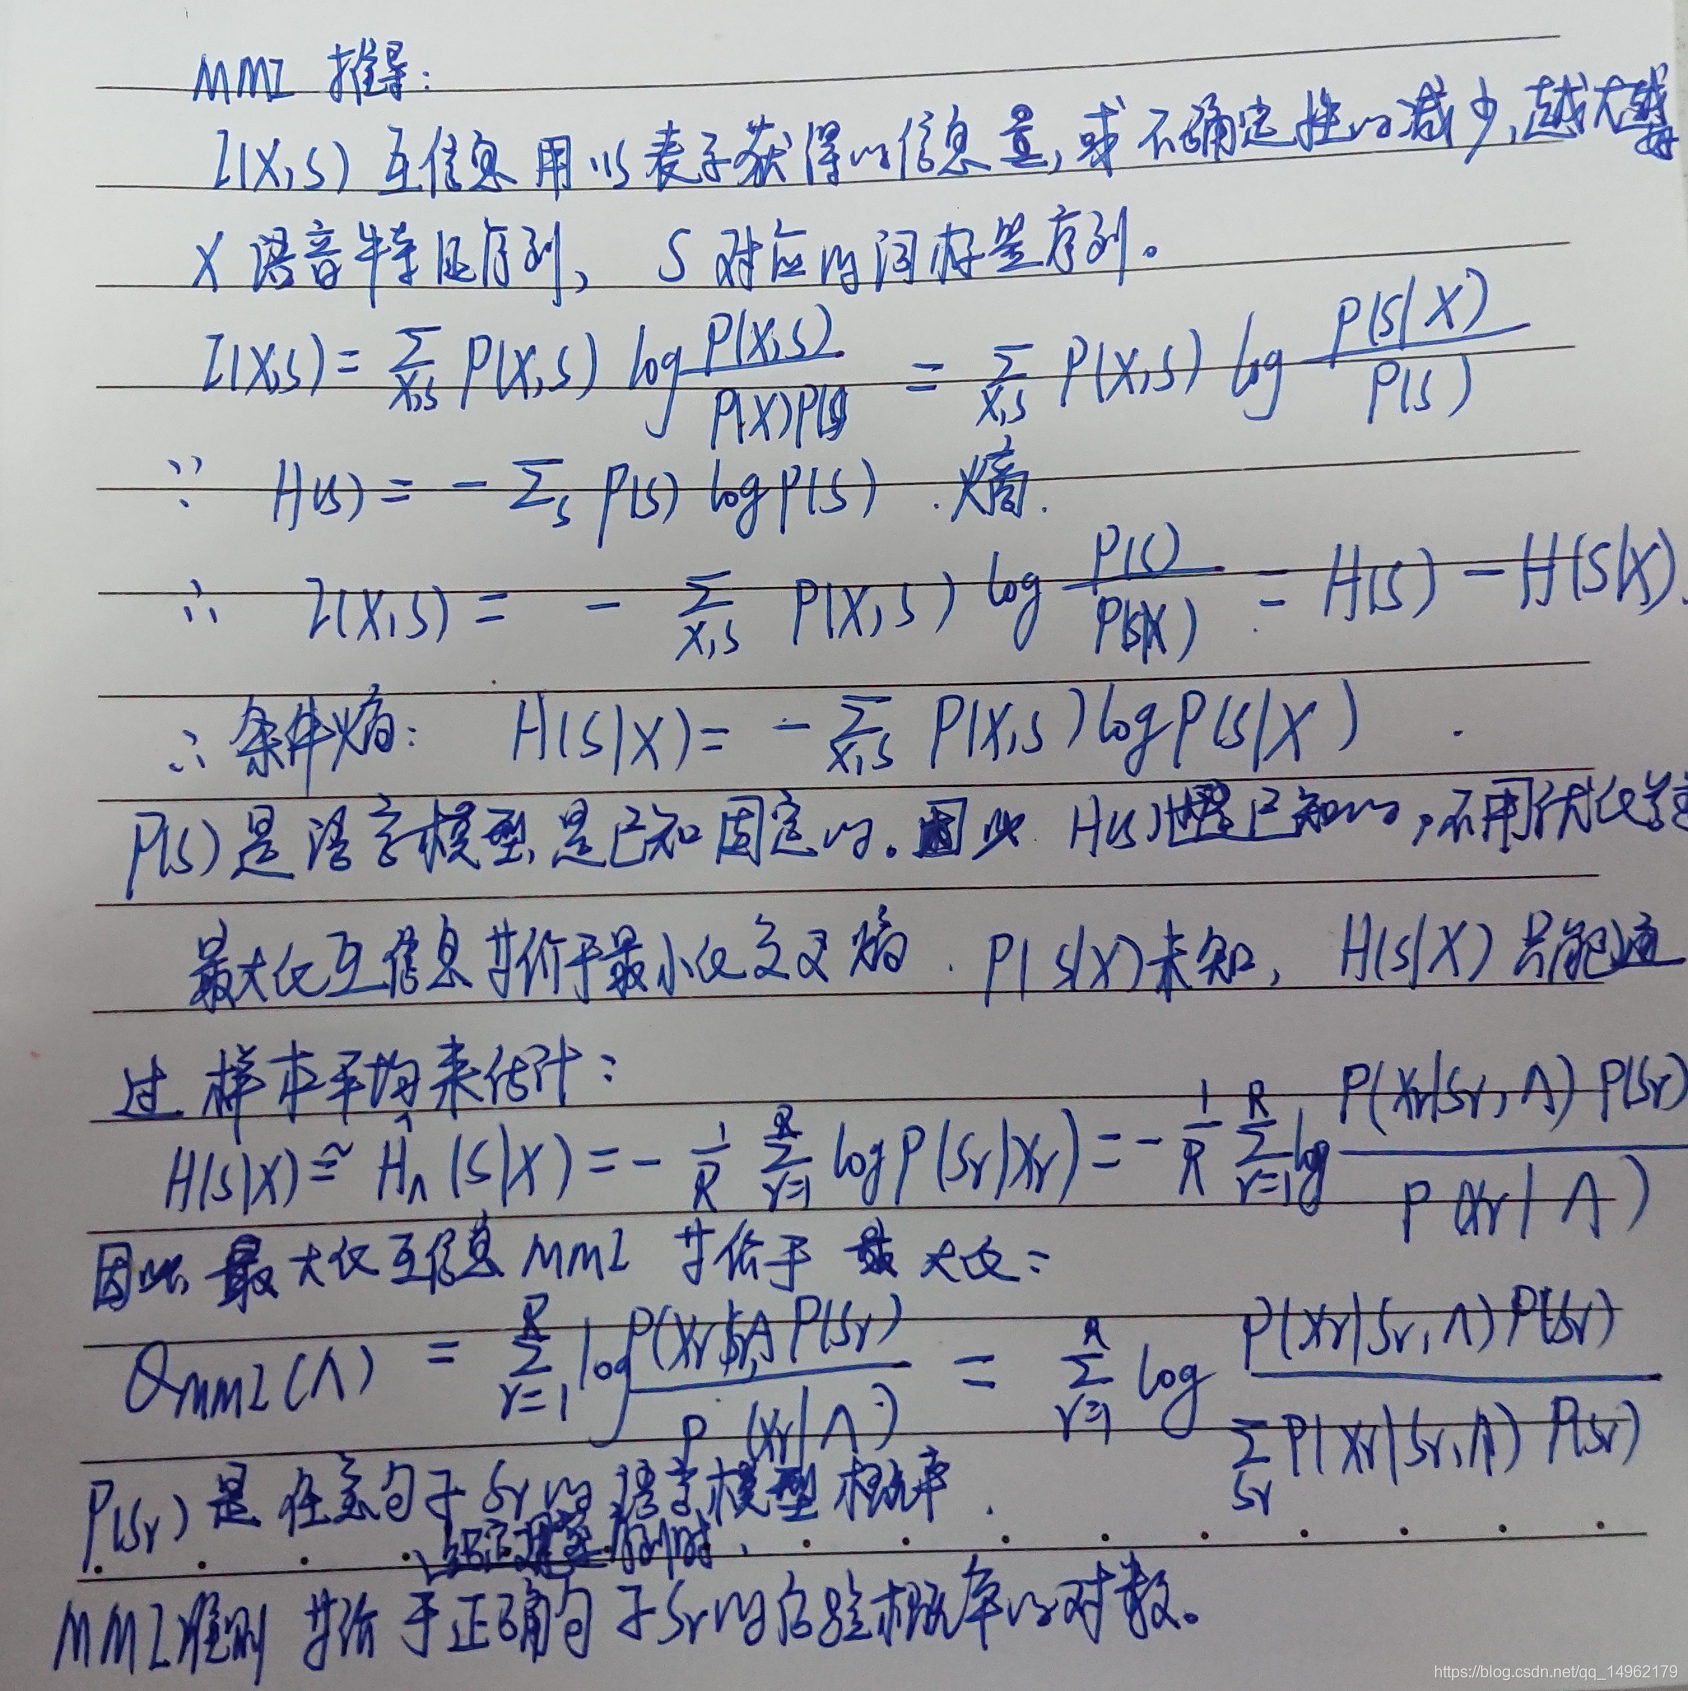 MMI 推导:
I(X,S) 互信息用以表示获得的信息量,或不确定性的减少,越大越好
X 语音特征序列, S 对应的词标签序列。
I(X,S) = Σ_{X,S} P(X,S) log P(X,S) / P(X)P(S) = Σ_{X,S} P(X,S) log P(S|X) / P(S)
∵ H(S) = - Σ_S P(S) log P(S) . 熵.
∴ I(X,S) = - Σ_{X,S} P(X,S) log P(S) / P(S|X) = H(S) - H(S|X).
∴ 条件熵: H(S|X) = - Σ_{X,S} P(X,S) log P(S|X) .
P(S) 是语言模型,是已知固定的。因此 H(S) 也是已知的,不用优化
最大化互信息等价于最小化交叉熵. P(S|X) 未知, H(S|X) 只能通
过样本平均来估计:
H(S|X) ≅ Ĥ_Λ (S|X) = - 1/R Σ_{r=1}^{R} log P(Sr|Xr) = - 1/R Σ_{r=1}^{R} log P(Xr|Sr,Λ) P(Sr) / P(Xr|Λ)
因此,最大化互信息 MMI 等价于最大化:
Q_{MMI}(Λ) = Σ_{r=1}^{R} log P(Xr|Sr,Λ) P(Sr) / P(Xr|Λ) = Σ_{r=1}^{R} log P(Xr|Sr,Λ) P(Sr) / Σ_{Sr} P(Xr|Sr,Λ) P(Sr)
P(Sr) 是任意句子 Sr 的语言模型概率.
序列时
MMI准则等价于正确句子Sr的后验概率的对数。
https://blog.csdn.net/qq_14962179